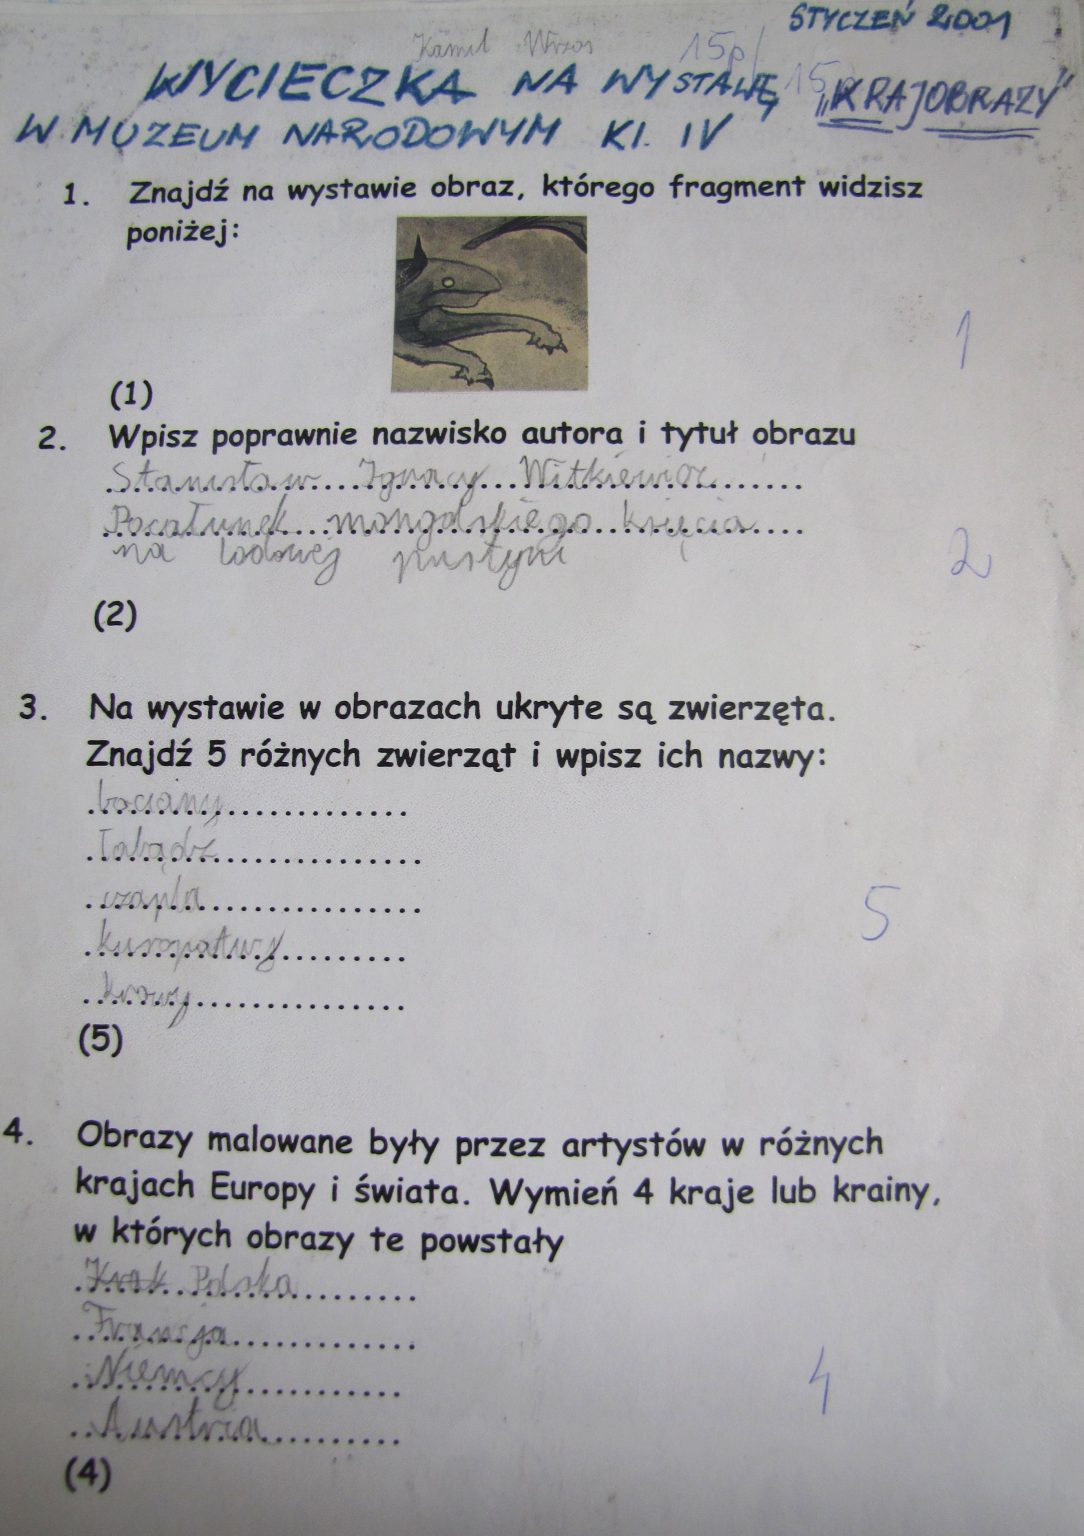 STYCZEŃ 2001
Kamil Wrzos 15p/15p
WYCIECZKA NA WYSTAWĘ „KRAJOBRAZY”
W MUZEUM NARODOWYM Kl. IV
1. Znajdź na wystawie obraz, którego fragment widzisz
poniżej:
1
(1)
2. Wpisz poprawnie nazwisko autora i tytuł obrazu
Stanisław Ignacy Witkiewicz
Pocałunek mongolskiego księcia
na lodowej pustyni
2
(2)
3. Na wystawie w obrazach ukryte są zwierzęta.
Znajdź 5 różnych zwierząt i wpisz ich nazwy:
bociany
łabędz
czapla
kuropatwy
krowy
5
(5)
4. Obrazy malowane były przez artystów w różnych
krajach Europy i świata. Wymień 4 kraje lub krainy,
w których obrazy te powstały
Polska
Francja
Niemcy
Austria
4
(4)